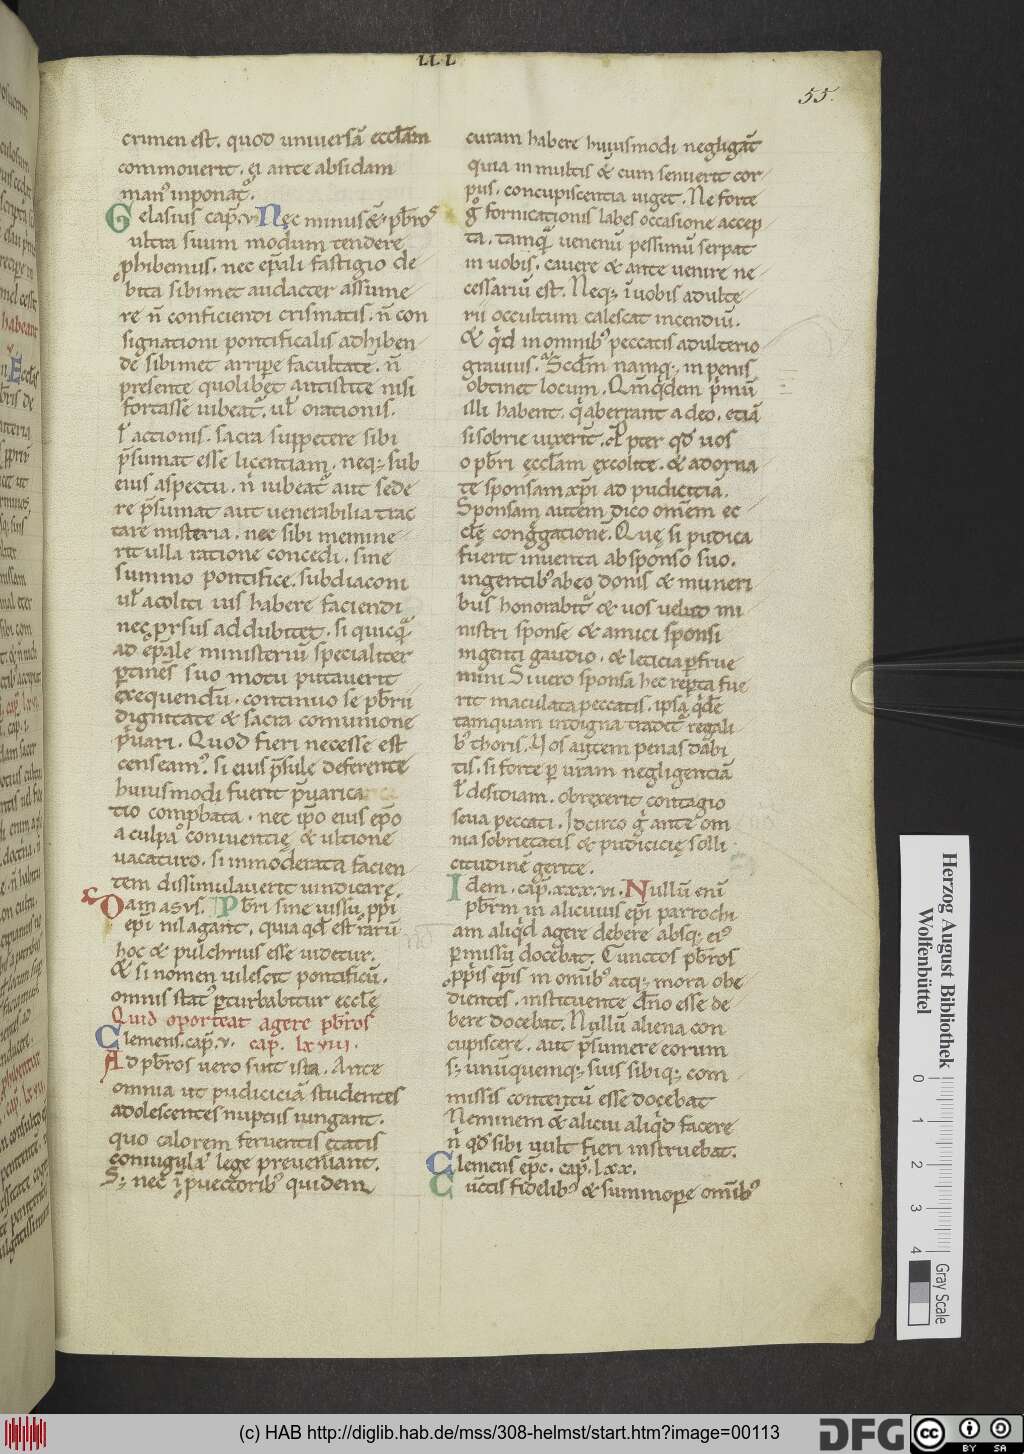 LL L
55.
crimen est. quod uniuersā eccl̄am
commouerit. ei ante absidam
man᷒ inponat᷒.
Gelasius cap̄. v Nec minus & p̄bros
ultra suum modum tendere
ꝓhibemus. nec ep̄ali fastigio de
bita sibimet audacter assume
re n̄ conficiendi crismatis. n̄ con
signationi pontificalis adhiben
de sibimet arripe facultatē. n̄
presente quolibet antistite nisi
fortasse iubeat᷒. ul̄ orationis.
ł actionis. sacra suppetere sibi
p̄sumat esse licentiam. neq; sub
eius aspectu. n̄ iubeat᷒ aut sede
re p̄sumat aut uenerabilia trac
tare misteria. nec sibi memine
rit ulla ratione concedi. sine
summo pontifice. subdiaconi
ul̄ acoliti ius habere faciendi
nec ꝓrsus addubitet. si quicq̄
ad ep̄ale ministeriū specialiter
ꝑtinēs suo motu putauerit
exequendū. continuo se p̄brii
dignitate & sacra comunione
p̄uari. Quod fieri necesse est
censeam᷒. si eius p̄sule deferente
huiusmodi fuerit p̄uarica
tio comp̄bata. nec ip̄o eius ep̄o
a culpa conuentię & ultione
uacaturo. si inmoderata facien
tem dissimulauerit uindicare.
Damasus. P̄bri sine iussu ꝓprii
ep̄i nil agant. quia qd̄ est rarū
hoc & pulchrius esse uidetur.
& si nomen uilescit pontificū.
omnis stat᷒ ꝑturbabitur eccl̄ę
Quid oporteat agere p̄bros
Clemens. cap̄. v. cap̄. lxviii.
Ad p̄bros uero sint ista. Ante
omnia ut pudiciciā studentes
adolescentes nuptiis iungant.
quo calorem feruentis ętatis
coniugula lege preueniant.
S; nec ī ꝓuectorib᷒ quidem
curam habere huiusmodi negligāt
quia in multis & cum senuerit cor
pus. concupiscentia uiget. Ne forte
g̊ fornicationis labes occasione accep
ta. tamq̄ uenenū pessimū serpat
in uobis. cauere & ante uenire ne
cessariū est. Neq; ī uobis adulte
rii occultum calescat incendiū.
& qd̄ in omnib᷒ peccatis adulterio
grauius. Scd̄m namq; in penis
obtinet locum. Qm̄qdem p̄mū
illi habent. q̄ aberrant a deo. etiā
si sobrie uixerīt. Ꝓpter qd̄ uos
o p̄bri ęccl̄am excolite. & adorna
te sponsam xp̄i ad pudicitia.
Sponsam autem dico om̄em ec
clę congregationē. Quę si pudica
fuerit inuenta ab sponso suo.
ingentib᷒ ab eo donis & muneri
bus honorabit᷒ & uos uelud mi
nistri sponse & amici sponsi
ingenti gaudio. & leticia ꝑfrue
mini Si uero sponsa hec reperta fue
rit maculata peccatis. ipsa q̄dē
tamquam indigna tradet᷒ regali
b᷒ thoris. Uos autem penas dabi
tis. si forte ꝑ ur̄am negligenciā
ł desidiam. obrexerit contagio
seua peccati. Idcirco g̊ ante om
nia sobrietatis & pudicicię solli
citudinē gerite.
Idem. cap̄. xxxvi. Nullū eni
p̄brm in alicuius ep̄i parrochi
am aliqd agere debere absq; ei᷒
ꝑmissu docebat. Cunctos p̄bros
ꝓpriis ep̄is in om̄ib᷒ atq; mora obe
dientes. instituente dn̄o esse de
bere docebat. Nullū aliena con
cupiscere. aut p̄sumere eorum
s; unūquemq; suis sibiq; com
missis contentū esse docebat
Neminem & alicui aliqd facere
n̄ qd̄ sibi uult fieri instruebat.
Clemens ep̄c. cap̄. lxx.
Cunctis fidelib᷒ & summope om̄ib᷒
Herzog August Bibliothek
Wolfenbüttel
0 1 2 3 4
Gray Scale
(c) HAB http://diglib.hab.de/mss/308-helmst/start.htm?image=00113
DFG
cc BY SA